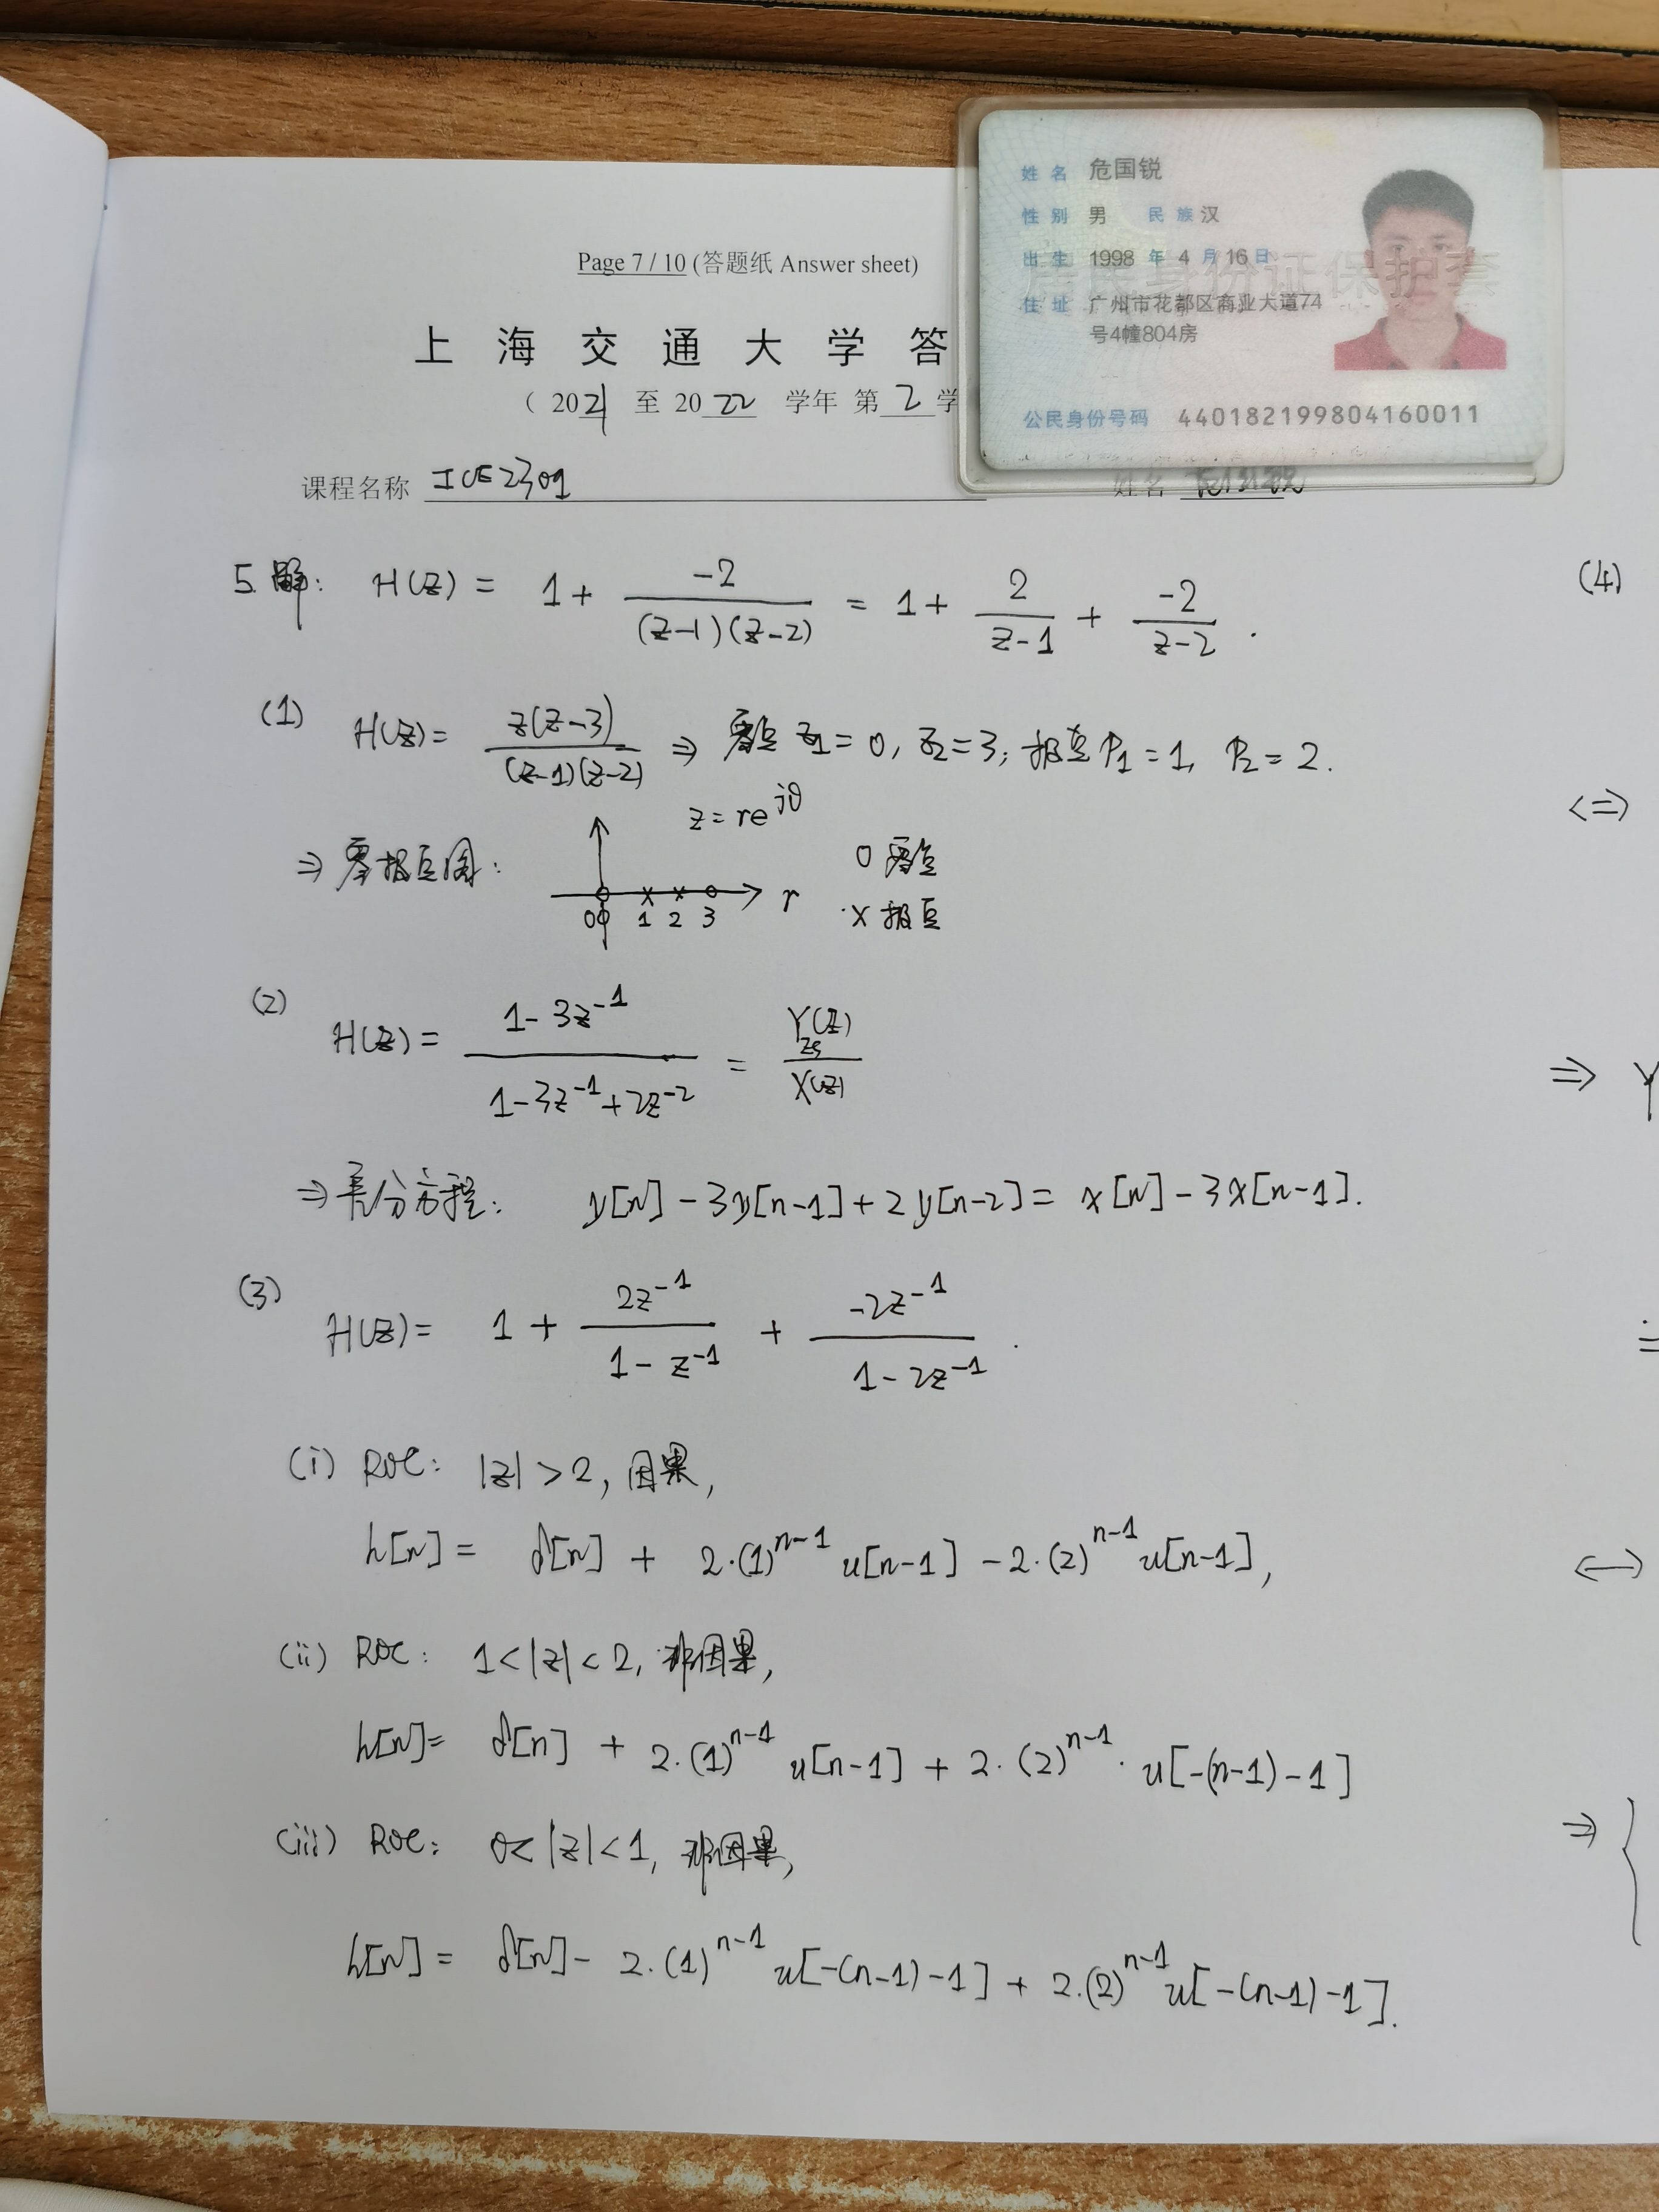 Page 7 / 10 (答题纸 Answer sheet)
上海交通大学答
( 2021 至 2022 学年 第 2 学
课程名称 ICE2301
姓名 危国锐
姓名 危国锐
性别 男 民族 汉
出生 1998 年 4 月 16 日
居民身份证保护套
住址 广州市花都区商业大道74
号4幢804房
公民身份号码 440182199804160011
5. 解: H(z) = 1 + \frac{-2}{(z-1)(z-2)} = 1 + \frac{2}{z-1} + \frac{-2}{z-2}.
(1) H(z) = \frac{z(z-3)}{(z-1)(z-2)} ⇒ 零点 z_1 = 0, z_2 = 3; 极点 p_1 = 1, p_2 = 2.
z = re^{jθ}
⇒ 零极点图: 0 1 2 3 r
O 零点
X 极点
(2) H(z) = \frac{1-3z^{-1}}{1-3z^{-1}+2z^{-2}} = \frac{Y_{zs}(z)}{X(z)}
⇒ 差分方程: y[n] - 3y[n-1] + 2y[n-2] = x[n] - 3x[n-1].
(3) H(z) = 1 + \frac{2z^{-1}}{1-z^{-1}} + \frac{-2z^{-1}}{1-2z^{-1}}.
(i) ROC: |z| > 2, 因果,
h[n] = δ[n] + 2·(1)^{n-1} u[n-1] - 2·(2)^{n-1} u[n-1],
(ii) ROC: 1 < |z| < 2, 非因果,
h[n] = δ[n] + 2·(1)^{n-1} u[n-1] + 2·(2)^{n-1}· u[-(n-1)-1]
(iii) ROC: 0 < |z| < 1, 非因果,
h[n] = δ[n] - 2·(1)^{n-1} u[-(n-1)-1] + 2·(2)^{n-1} u[-(n-1)-1].
(4)
<=>
⇒ Y
<->
⇒ {